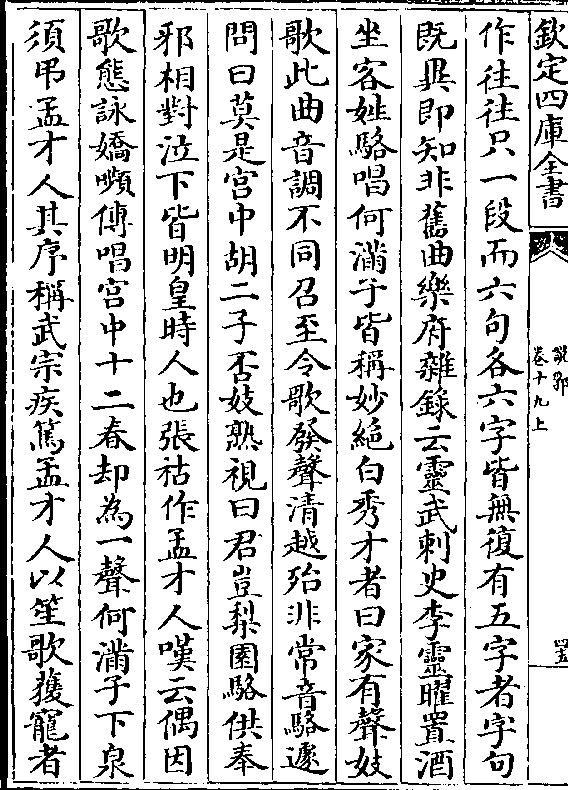 欽定四庫全書
說郛
卷十九上
罣
作往往只一段而六句各六字皆無復有五字者字句
既異即知非舊曲樂府雜錄云靈武刺史李靈曜置酒
坐客姓駱唱何滿子皆稱妙絶白秀才者曰家有聲妓
歌此曲音調不同召至令歌發聲清越殆非常音駱遽
問曰莫是宫中胡二子否妓熟視曰君豈梨園駱供奉
邪相對泣下皆明皇時人也張祜作孟才人嘆云偶因
歌態詠嬌嚬傳唱宫中十二春却為一聲何滿子下泉
須弔孟才人其序稱武宗疾篤孟才人以笙歌獲寵者